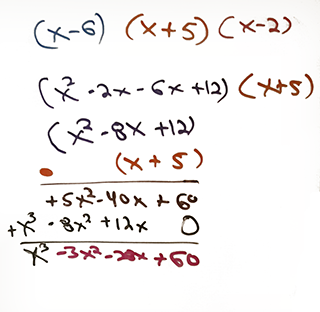 (x-6) (x+5) (x-2)
(x² -2x -6x +12) (x+5)
(x² -8x +12)
• (x+5)
+5x² -40x +60
+x³ -8x² +12x 0
x³ -3x² -28x +60